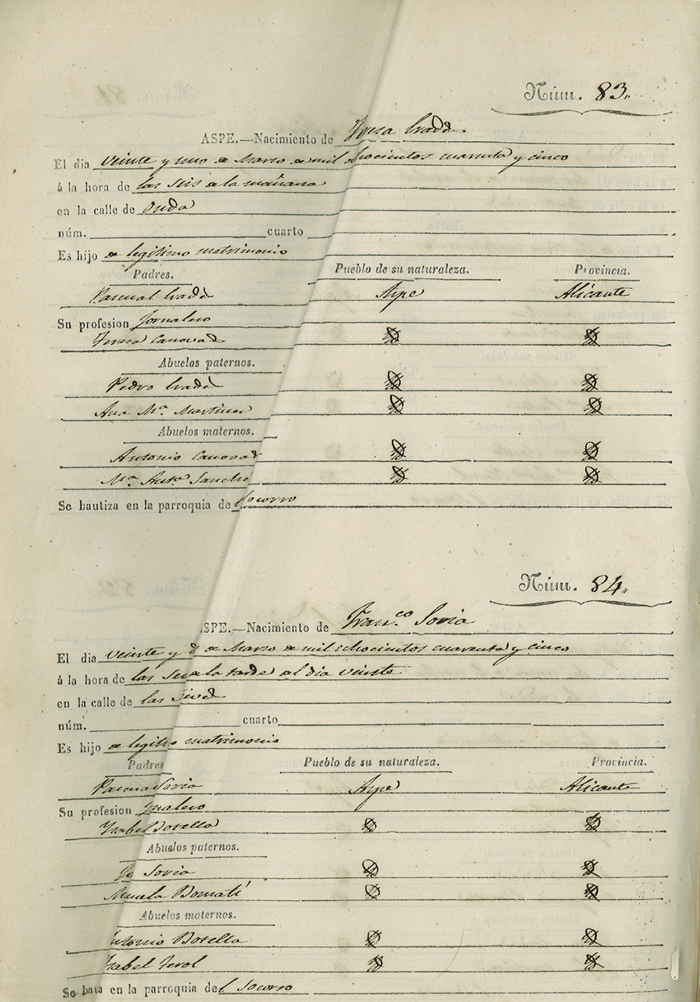 Núm. 83.
ASPE.—Nacimiento de Teresa Cradd
El dia veinte y uno de Marzo de mil ochocientos cuarenta y cinco
á la hora de las seis de la mañana
en la calle de Onda
núm. cuarto
Es hijo de legitimo matrimonio
Padres. Pueblo de su naturaleza. Provincia.
Pascual Aspe Alicante
Su profesion Jornalero
Teresa Canovas
Abuelos paternos.
Pedro
Ana Mª. Martinez
Abuelos maternos.
Antonio Canovas
Mª. Antª. Sanchez
Se bautiza en la parroquia de Socorro
Núm. 84.
ASPE.—Nacimiento de Fran.co Soria
El dia veinte y de Marzo de mil ochocientos cuarenta y cinco
á la hora de las de la tarde del dia veinte
en la calle de las
núm. cuarto
Es hijo de legitimo matrimonio
Padres Pueblo de su naturaleza. Provincia.
Soria Aspe Alicante
Su profesion
Ysabel Botella
Abuelos paternos.
Soria
Abuelos maternos.
Antonio Botella
Ysabel
Se en la parroquia de Socorro